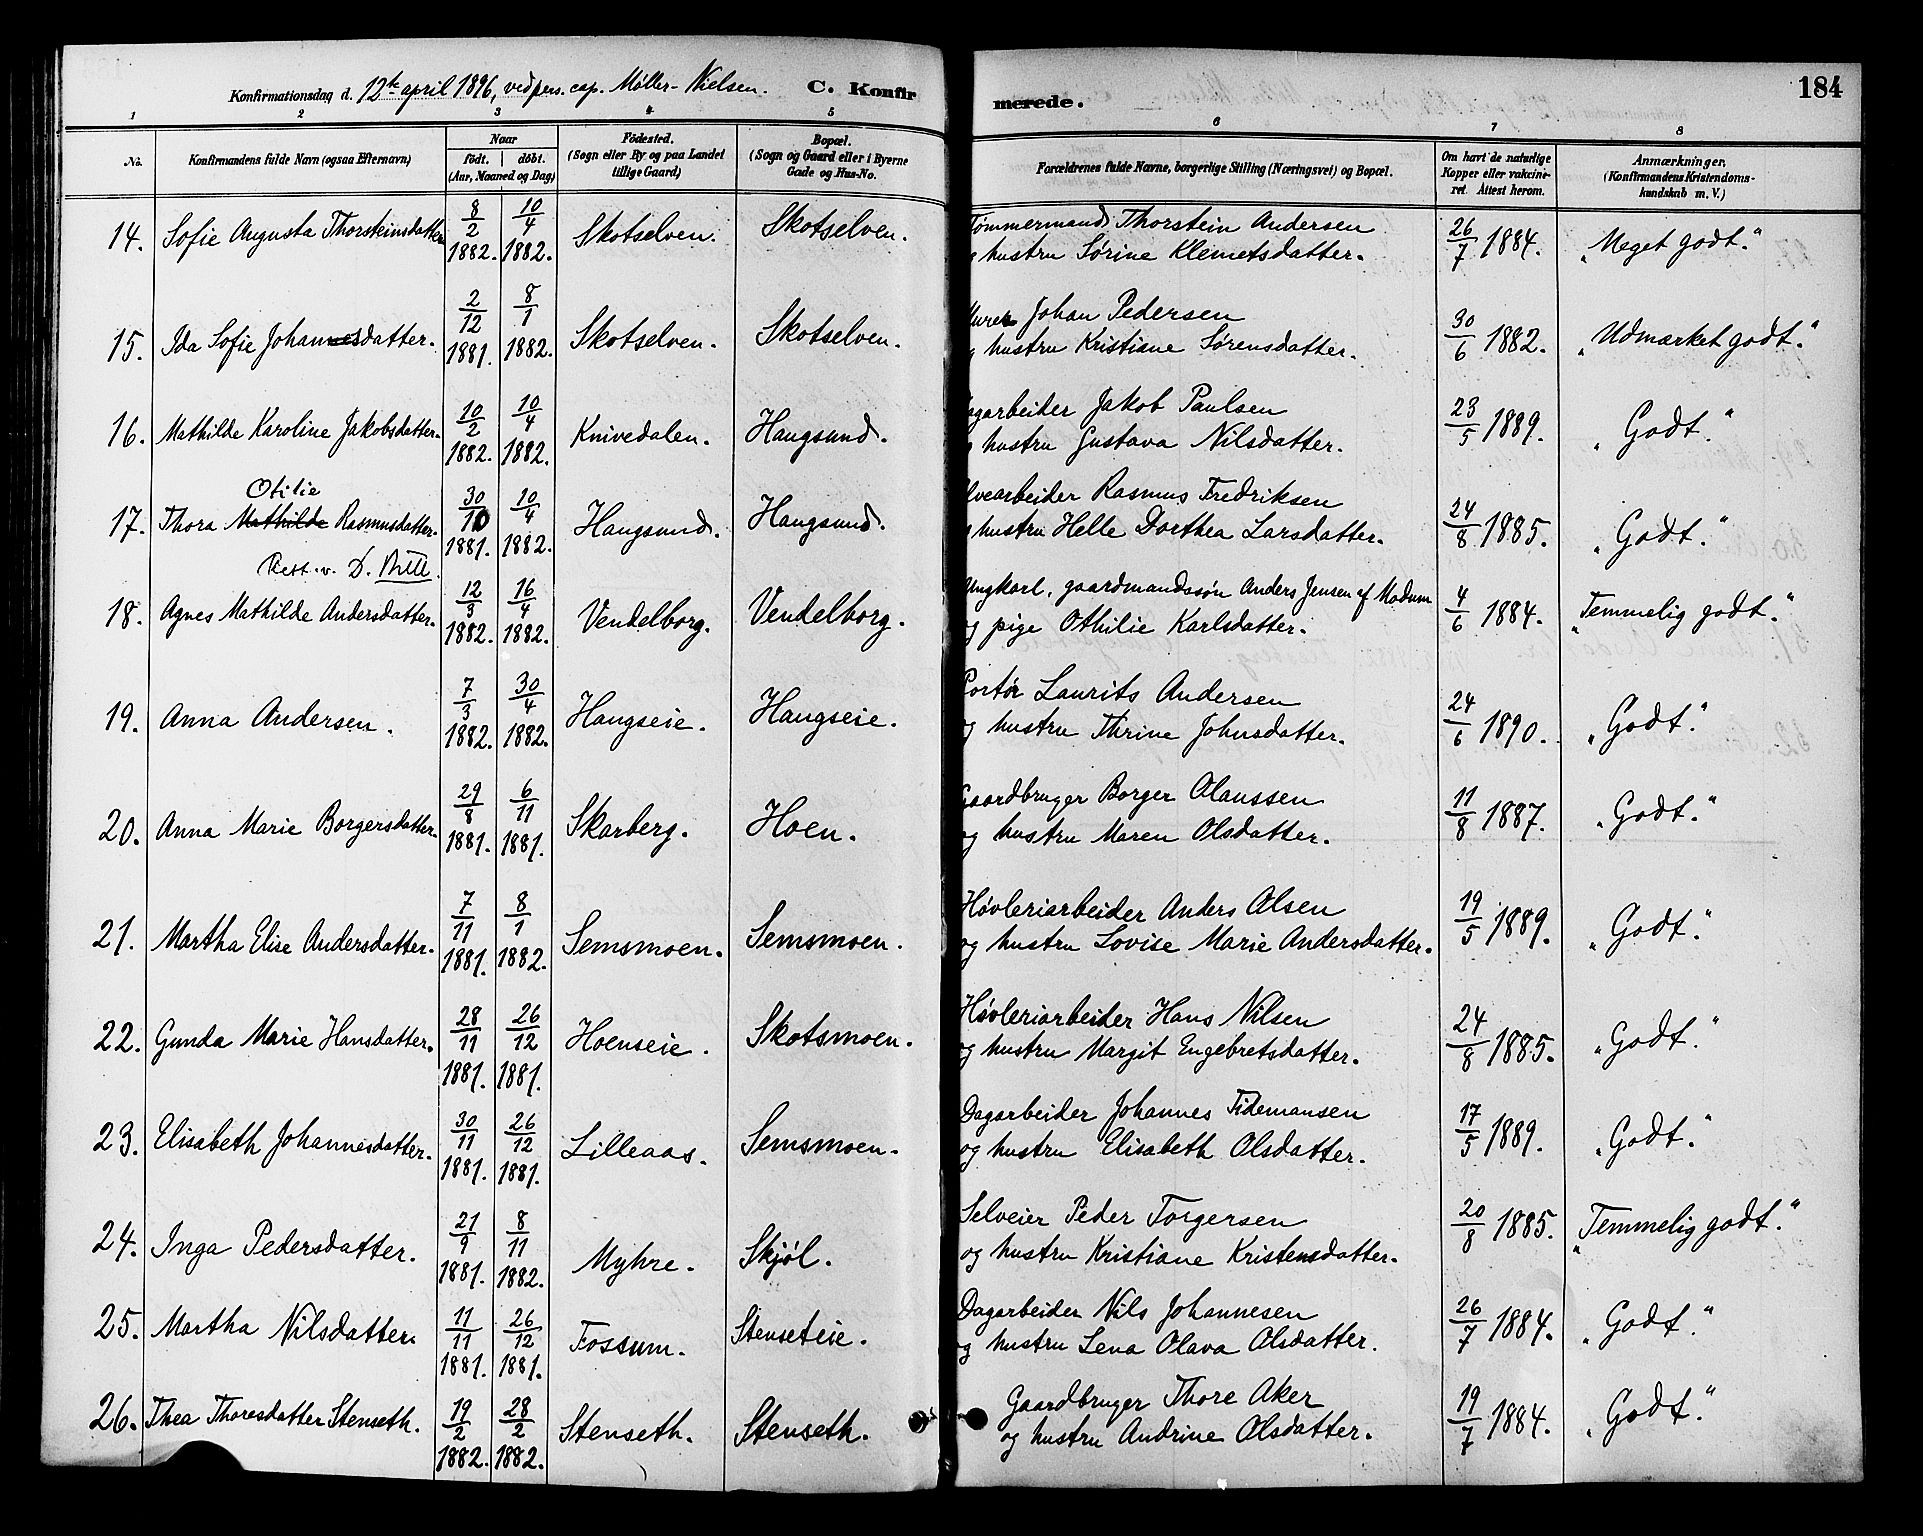 Konfirmationsdag d. 12te april 1896, ved pers. cap. Møller-Nielsen. C. Konfirmerede. 184
1 2 3 4 5 6 7 8
No. Konfirmandens fulde Navn (ogsaa Efternavn) Naar født. døbt. (Aar, Maaned og Dag) Fødested. (Sogn eller By og paa Landet tillige Gaard) Bopæl. (Sogn og Gaard eller i Byerne Gade og Hus-No. Forældrenes fulde Navne, borgerlige Stilling (Næringsvei) og Bopæl. Om havt de naturlige Kopper eller vakcineret. Attest herom. Anmærkninger, (Konfirmandens Kristendomskundskab m. V.)
14. Sofie Augusta Thorsteinsdatter 8/2 1882. 10/4 1882. Skotselven. Skotselven. Tømmermand Thorstein Andersen
hustru Sørine Klemetsdatter. 26/7 1884. „Meget godt.“
15. Ida Sofie Johannesdatter. 2/12 1881. 8/1 1882. Skotselven. Skotselven. Murer Johan Pedersen
hustru Kristiane Sørensdatter. 30/6 1882. „Udmærket godt.“
16. Mathilde Karoline Jakobsdatter. 10/2 1882. 10/4 1882. Knivedalen. Haugsund. Dagarbeider Jakob Paulsen
hustru Gustava Nilsdatter. 23/5 1889. „Godt.“
Otilie
17. Thora Mathilde Rasmusdatter. 30/10 1881. 10/4 1882. Haugsund. Haugsund. Elvearbeider Rasmus Fredriksen
hustru Helle Dorthea Larsdatter. 24/8 1885. „Godt.“
Rett. v. D.
18. Agnes Mathilde Andersdatter. 12/3 1882. 16/4 1882. Vendelborg. Vendelborg. Ungkarl, gaardmandssøn Anders Jensen af Modum
og pige Othilie Karlsdatter. 4/6 1884. „Temmelig godt.“
19. Anna Andersen. 7/3 1882. 30/4 1882. Haugseie. Haugseie. Portør Laurits Andersen
og hustru Thrine Johnsdatter. 24/6 1890. „Godt.“
20. Anna Marie Borgersdatter. 29/8 1881. 6/11 1881. Skarberg. Hoen. Gaardbruger Borger Olaussen
og hustru Maren Olsdatter. 11/8 1887. „Godt.“
21. Martha Elise Andersdatter. 7/11 1881. 8/1 1882. Semsmoen. Semsmoen. Høvleriarbeider Anders Olsen
og hustru Lovise Marie Andersdatter. 19/5 1889. „Godt.“
22. Gunda Marie Hansdatter. 28/11 1881. 26/12 1881. Hoenseie. Skotsmoen. Høvleriarbeider Hans Nilsen
og hustru Margit Engebretsdatter. 24/8 1885. „Godt.“
23. Elisabeth Johannesdatter. 30/11 1881. 26/12 1881. Lilleaas. Semsmoen. Dagarbeider Johannes Tidemansen
og hustru Elisabeth Olsdatter. 17/5 1889. „Godt.“
24. Inga Pedersdatter. 21/9 1881. 8/11 1882. Myhre. Skjøl. Selveier Peder Torgersen
og hustru Kristiane Kristensdatter. 20/8 1885. „Temmelig godt.“
25. Martha Nilsdatter. 11/11 1881. 26/12 1881. Fossum. Stenseteie. Dagarbeider Nils Johannesen
og hustru Lena Olava Olsdatter. 26/7 1884. „Godt.“
26. Thea Thoresdatter Stenseth. 19/2 1882. 28/2 1882. Stenseth. Stenseth. Gaardbruger Thore Aker
og hustru Andrine Olsdatter. 19/7 1884. „Godt.“